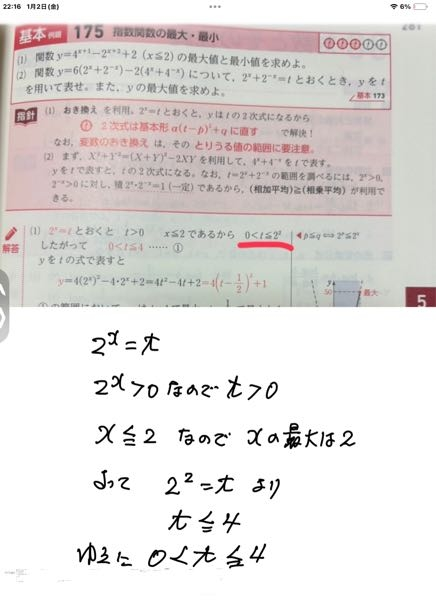 22:16 1月2日(金)
6%
基本 例題 175 指数関数の最大・最小
(1) 関数 y=4ˣ⁺¹−2ˣ⁺²+2 (x≦2) の最大値と最小値を求めよ。
(2) 関数 y=6(2ˣ+2⁻ˣ)−2(4ˣ+4⁻ˣ) について, 2ˣ+2⁻ˣ=t とおくとき, y を t
を用いて表せ。また, y の最大値を求めよ。
基本 173
指針
(1) おき換え を利用。2ˣ=t とおくと, y は t の2次式になるから
2次式は基本形 a(t−p)²+q に直す で解決!
なお, 変数のおき換え は, その とりうる値の範囲に要注意。
(2) まず, X²+Y²=(X+Y)²−2XY を利用して, 4ˣ+4⁻ˣ を t で表す。
y を t で表すと, t の2次式になる。なお, t=2ˣ+2⁻ˣ の範囲を調べるには, 2ˣ>0,
2⁻ˣ>0 に対し, 積 2ˣ・2⁻ˣ=1 (一定) であるから, (相加平均)≧(相乗平均) が利用で
きる。
解答
(1) 2ˣ=t とおくと t>0 x≦2 であるから 0<t≦2²
◀p≦q⇔2ᵖ≦2^q
したがって 0<t≦4 …… ①
y を t の式で表すと
y=4(2ˣ)²−4・2ˣ+2=4t²−4t+2=4(t−1/2)²+1
y
50
最大
5
2ˣ=t
2ˣ>0なのでt>0
x≦2 なので xの最大は2
よって 2²=t より
t≦4
ゆえに 0<t≦4